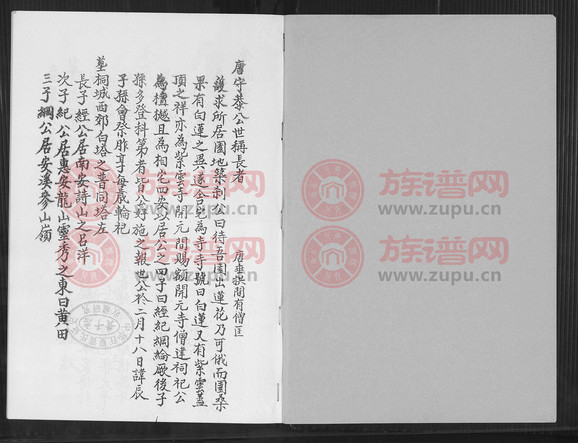 唐守恭公世稱長者 唐垂拱間有僧匡
護求所居園地築刹公曰待吾園出蓮花乃可俄而園桑
果有白蓮之異遂舍宅為寺寺號曰白蓮又有紫雲蓋
頂之祥亦為紫雲寺開元間賜額開元寺僧建祠祀公
為檀樾且為相宅四安以居公之四子曰經紀綱綸厥後子
孫多登科第者皆公好施之報也公於二月十八日諱辰
子孫會祭胙享每歲輪祀
墓祠城西郊白塔之普同塔左
長子經公居南安詩山之呂洋
次子紀公居惠安龍山靈秀之東曰黃田
三子綱公居安溪參山嶺
族谱网
www.zupu.cn
族谱网
www.zupu.cn
族谱网
www.zupu.cn
族谱网
www.zupu.cn